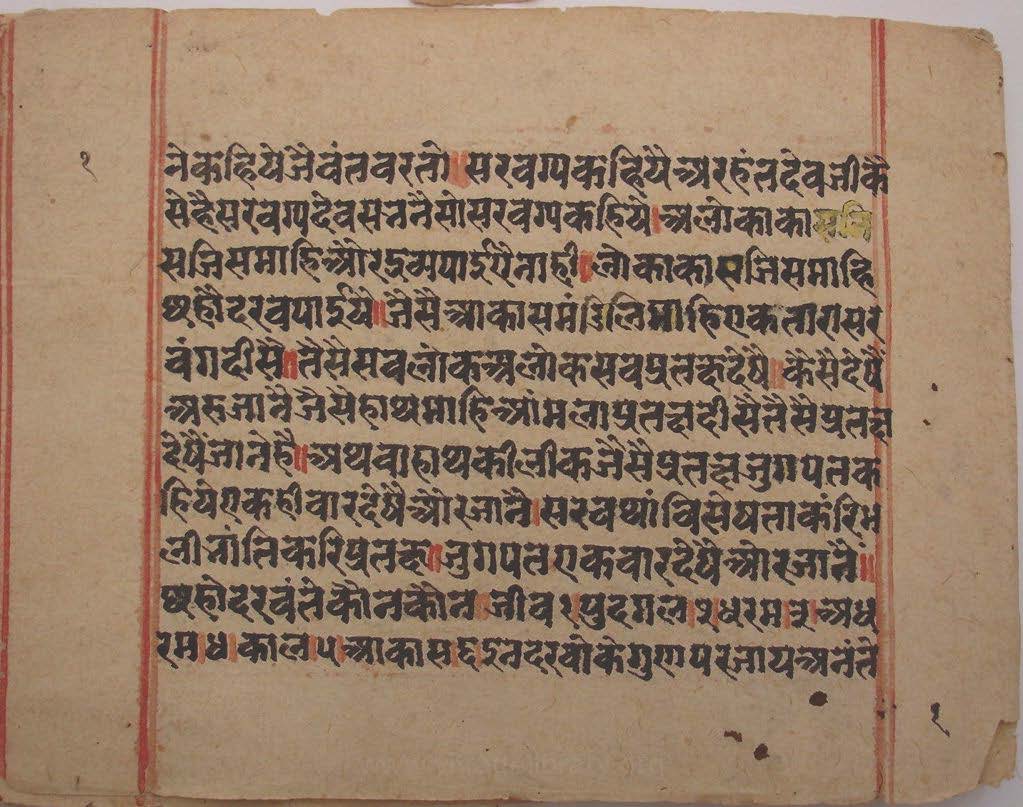 १
ने कहिये जैवंत वरतो॥ सरवग्य कहियै अरहंत देवजी कै
से है सरवग्य देव सननै सो सरवग्य कहिये। अलोकाका
स जिस माहि और द्रुव्य पाईयै नाही॥ लोकाकास जिस माहि
षट ही दरव पाईयै॥ जैसै आकास मंजिलि माहि एक तारा सर
वंग दीसै॥ तैसै सव लोक अलोक सव प्रतक्ष देषै॥ कैसै देषै
अरु जानै जैसै हाथ माहि आंमला प्रतक्ष दीसै तैसै प्रतक्ष
देषै जाने है॥ अथवा हाथ की लीक जैसै प्रतक्ष जुगपत क
हिये एक ही वार देषै और जानै। सरवथा विसेषता करि भ
ली भांति करि प्रतक्ष॥ जुगपत एक वार देषै और जानै॥
षट ही दरव ते कौन कौन। जीव १ पुदगल।२। धरम।३। अध
रम।४। काल।५। आकास।६। इन दरवो के गुण परजाय अनंते
१